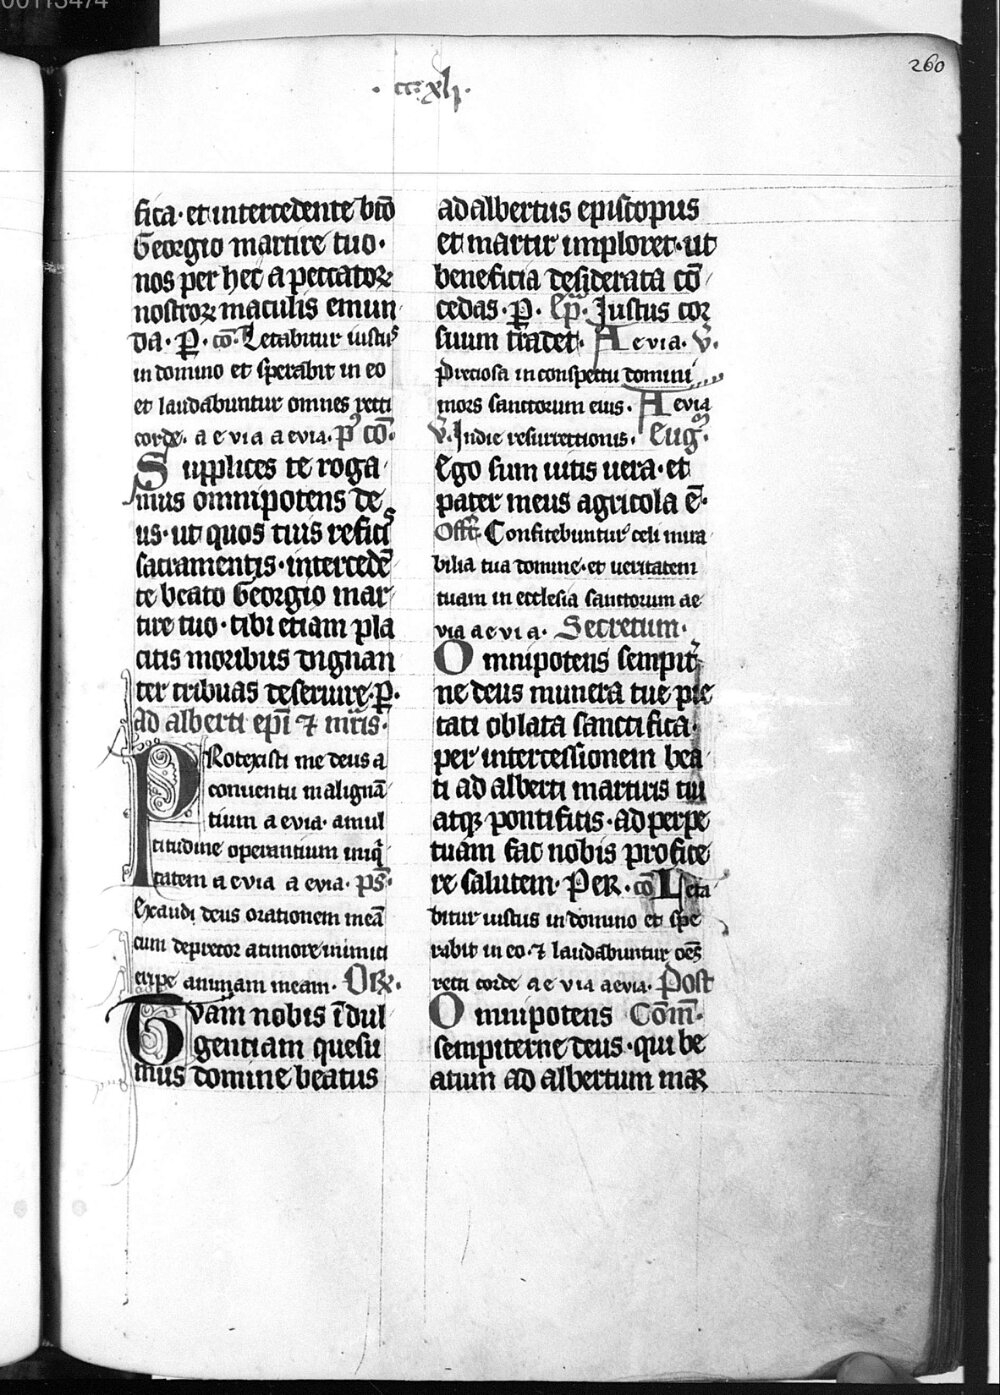 00113474
260
· ccxlj ·
fica · et intercedente bt̄o
Georgio martire tuo ·
nos per hec a peccatoꝝ
nostroꝝ maculis emun
da · P̲ · cō · Letabitur iustus
in domino et sperabit in eo
et laudabuntur omnes recti
corde · a e v i a a evia · p9 cō ·
Supplices te roga
mus omnipotens de
us · ut quos tuis refici
sacramentis · intercedē
te beato Georgio mar
tire tuo · tibi etiam pla
citis moribus dignan
ter tribuas deseruire · P̲ ·
Ad alberti ep̄i ⁊ mr̄is ·
PRotexisti me deus a
conuentu malignā
tium a evia · a mul
titudine operantium iniq̄
tatem a evia a evia · ps̄ ·
Exaudi deus orationem meā
cum deprecor a timore inimici
eripe animam meam · Oꝝ ·
Quam nobis īdul
gentiam quesu
mus domine beatus
adalbertus episcopus
et martir imploret · ut
beneficia desiderata cō
cedas · P̲ · Ep̄ · Iustus cor
suum tradet · Aevia · V̄ ·
Preciosa in conspectu domini
mors sanctorum eius · Aevia
V̄ · In die resurrectionis · Eug̅ ·
Ego sum uitis uera · et
pater meus agricola ē ·
Off̄ · Confitebuntur celi mira
bilia tua domine · et ueritatem
tuam in ecclesia sanctorum ae
via a e v i a · Secretum ·
Omnipotens sempit̄
ne deus munera tue pie
tati oblata sanctifica ·
per intercessionem bea
ti ad alberti martiris tui
atqꝫ pontificis · ad perpe
tuam fac nobis profice
re salutem · PER · cō Leta
bitur iustus in domino et spe
rabit in eo · ⁊ laudabuntur oēs
recti corde a e v i a aevia · Post
Omnipotens Cōm̄ ·
sempiterne deus · qui be
atum ad albertum maꝝ